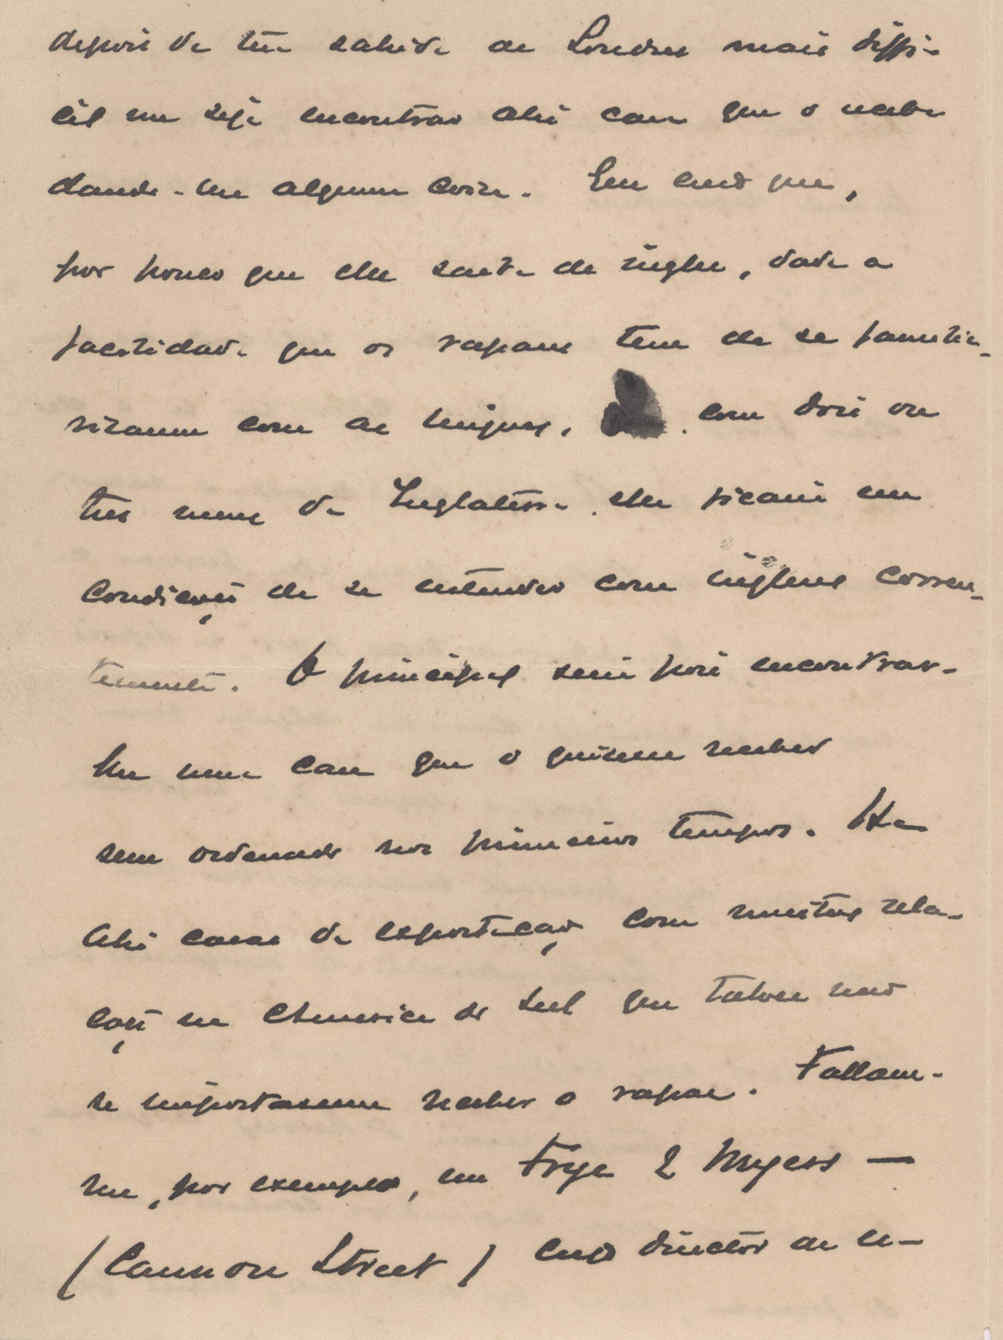 depois da tua sahida de Londres mais diffi-
cil me seja encontrar ahi casa que o receba
dando-lhe alguma coisa. Eu creio que,
por pouco que elle saiba de inglez, dada a
facilidade que os rapazes tem de se familia-
risarem com as linguas, com dois ou
tres mezes de Inglaterra elle ficaria em
condições de se entender com inglezes corren-
temente. O principal seria pois encontrar-
lhe uma casa que o quizesse receber
sem ordenado nos primeiros tempos. Ha
ahi casas de exportação com muitas rela-
ções na America do Sul que talvez não
se importassem receber o rapaz. Fallam-
me, por exemplo, em Frye & Myers —
(Cannon Street) cujo director de